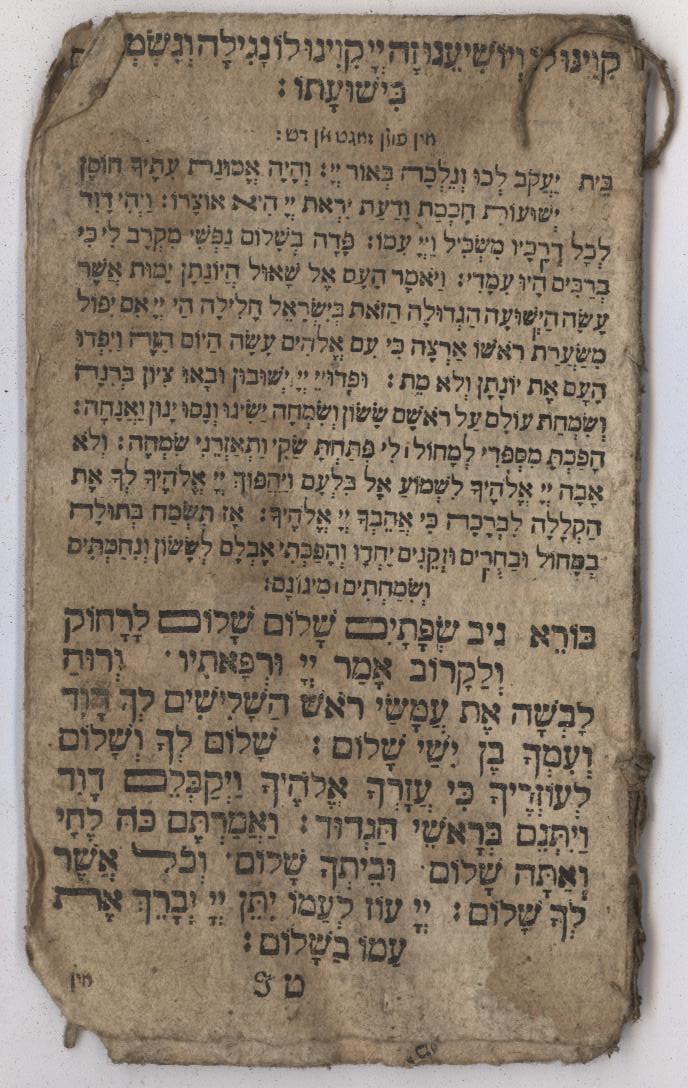 קִוִּינוּ לוֹ וְיוֹשִׁיעֵנוּ זֶה יְיָ קִוִּינוּ לוֹ נָגִילָה וְנִשְׂמְ
בִּישׁוּעָתוֹ :
בֵּית יַעֲקֹב לְכוּ וְנֵלְכָה בְּאוֹר יְיָ : וְהָיָה אֱמוּנַת עִתֶּיךָ חוֹסֶן
יְשׁוּעוֹת חָכְמַת וָדַעַת יִרְאַת יְיָ הִיא אוֹצָרוֹ : וַיְהִי דָוִד
לְכָל דְּרָכָיו מַשְׂכִּיל וַיְיָ עִמּוֹ : פָּדָה בְשָׁלוֹם נַפְשִׁי מִקְּרָב לִי כִּי
בְרַבִּים הָיוּ עִמָּדִי : וַיֹּאמֶר הָעָם אֶל שָׁאוּל הֲיוֹנָתָן יָמוּת אֲשֶׁר
עָשָׂה הַיְשׁוּעָה הַגְּדוֹלָה הַזֹּאת בְּיִשְׂרָאֵל חָלִילָה חַי יְיָ אִם יִפּוֹל
מִשַּׂעֲרַת רֹאשׁוֹ אַרְצָה כִּי עִם אֱלֹהִים עָשָׂה הַיּוֹם הַזֶּה וַיִּפְדּוּ
הָעָם אֶת יוֹנָתָן וְלֹא מֵת : וּפְדוּיֵי יְיָ יְשׁוּבוּן וּבָאוּ צִיּוֹן בְּרִנָּה
וְשִׂמְחַת עוֹלָם עַל רֹאשָׁם שָׂשׂוֹן וְשִׂמְחָה יַשִּׂיגוּ וְנָסוּ יָגוֹן וַאֲנָחָה :
הָפַכְתָּ מִסְפְּדִי לְמָחוֹל לִי פִּתַּחְתָּ שַׂקִּי וַתְּאַזְּרֵנִי שִׂמְחָה : וְלֹא
אָבָה יְיָ אֱלֹהֶיךָ לִשְׁמוֹעַ אֶל בִּלְעָם וַיַּהֲפוֹךְ יְיָ אֱלֹהֶיךָ לְךָ אֶת
הַקְּלָלָה לִבְרָכָה כִּי אֲהֵבְךָ יְיָ אֱלֹהֶיךָ : אָז תִּשְׂמַח בְּתוּלָה
בְּמָחוֹל וּבַחֻרִים וּזְקֵנִים יַחְדָּו וְהָפַכְתִּי אֶבְלָם לְשָׂשׂוֹן וְנִחַמְתִּים
וְשִׂמַּחְתִּים מִיגוֹנָם :
בּוֹרֵא נִיב שְׂפָתַיִם שָׁלוֹם שָׁלוֹם לָרָחוֹק
וְלַקָּרוֹב אָמַר יְיָ וּרְפָאתִיו · וְרוּחַ
לָבְשָׁה אֶת עֲמָשַׂי רֹאשׁ הַשָּׁלִישִׁים לְךָ דָוִד
וְעִמְּךָ בֶן יִשַׁי שָׁלוֹם : שָׁלוֹם לְךָ וְשָׁלוֹם
לְעוֹזְרֶיךָ כִּי עֲזָרְךָ אֱלֹהֶיךָ וַיְקַבְּלֵם דָוִד
וַיִּתְּנֵם בְּרָאשֵׁי הַגְּדוּד : וַאֲמַרְתֶּם כֹּה לֶחָי
וְאַתָּה שָׁלוֹם · וּבֵיתְךָ שָׁלוֹם · וְכֹל אֲשֶׁר
לְךָ שָׁלוֹם : יְיָ עוֹז לְעַמּוֹ יִתֵּן יְיָ יְבָרֵךְ אֶת
עַמּוֹ בַשָּׁלוֹם :
ט